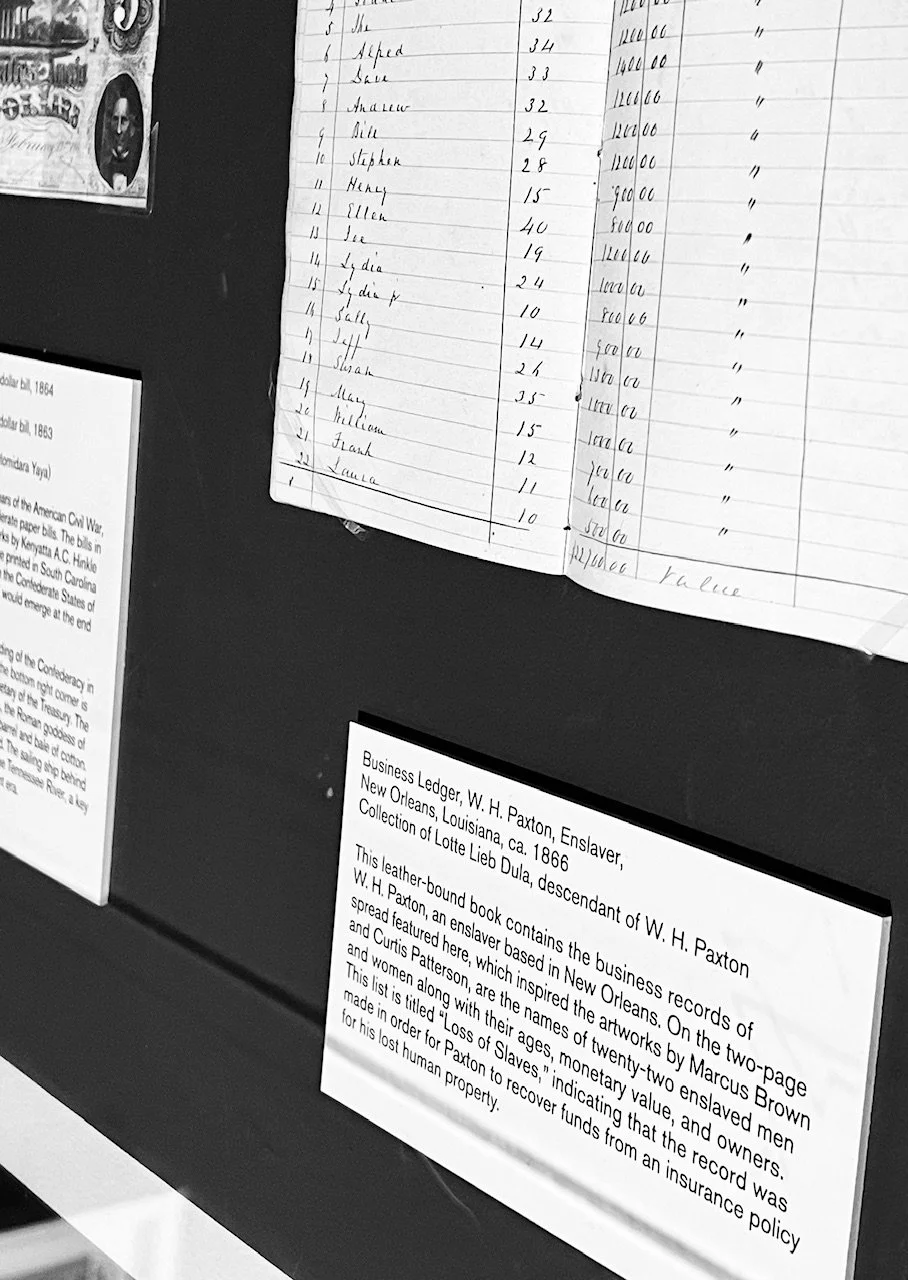 5 32 1200 00 "
6 Alfred 34 1200 00 "
7 Dave 33 1400 00 "
8 Andrew 32 1200 00 "
9 Bill 29 1200 00 "
10 Stephen 28 1200 00 "
11 Henry 15 900 00 "
12 Ellen 40 800 00 "
13 Joe 19 1200 00 "
14 Lydia 24 1000 00 "
15 Lydia jr 10 800 00 "
16 Sally 14 900 00 "
17 Jeff 26 1300 00 "
18 Susan 35 1000 00 "
19 Mary 15 1000 00 "
20 William 12 700 00 "
21 Frank 11 "
22 Laura 10 500 00
value
5
February
dollar bill, 1864
dollar bill, 1863
Yaya)
of the American Civil War,
paper bills. The bills in
by Kenyatta A.C. Hinkle
printed in South Carolina
the Confederate States of
would emerge at the end
of the Confederacy in
the bottom right corner is
of the Treasury. The
the Roman goddess of
barrel and bale of cotton
The sailing ship behind
Tennessee River, a key
era.
Business Ledger, W. H. Paxton, Enslaver,
New Orleans, Louisiana, ca. 1866
Collection of Lotte Lieb Dula, descendant of W. H. Paxton
This leather-bound book contains the business records of
W. H. Paxton, an enslaver based in New Orleans. On the two-page
spread featured here, which inspired the artworks by Marcus Brown
and Curtis Patterson, are the names of twenty-two enslaved men
and women along with their ages, monetary value, and owners.
This list is titled “Loss of Slaves,” indicating that the record was
made in order for Paxton to recover funds from an insurance policy
for his lost human property.